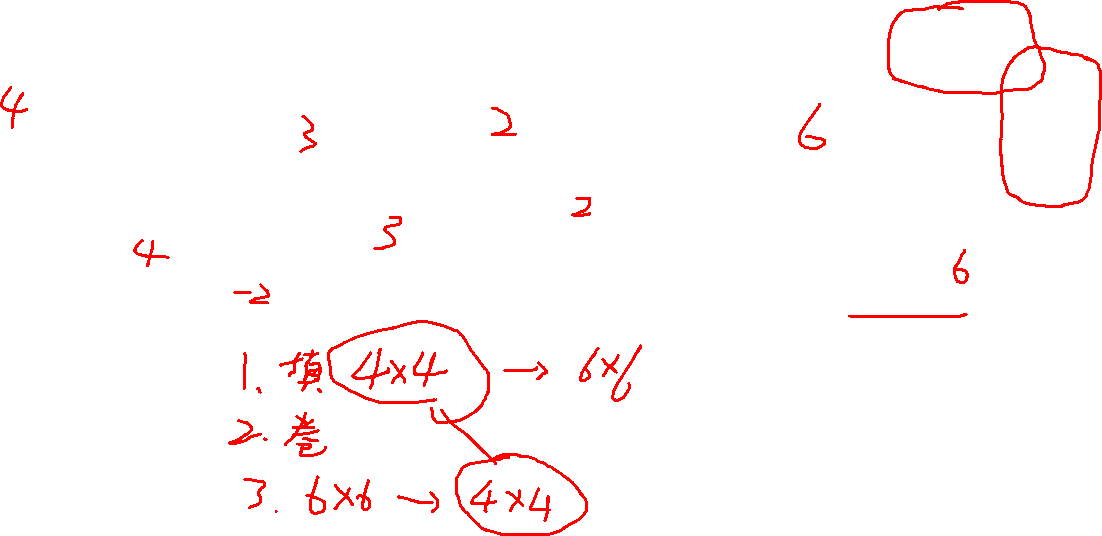 4 3 2 6
4 3 2 6
-2
1. 填 4×4 → 6×6
2. 卷
3. 6×6 → 4×4